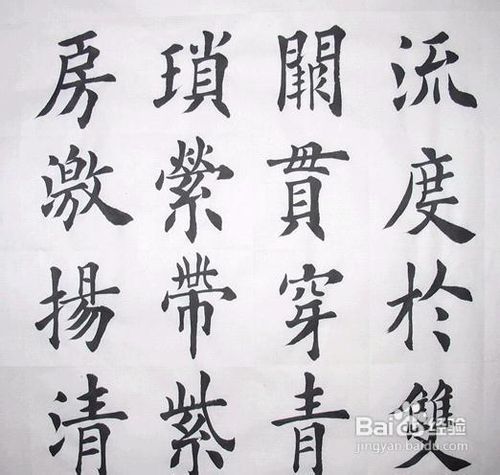 流度於雙
闕貫穿青
瑣縈帶紫
房激揚清
Bai du 经验
jingyan.baidu.com